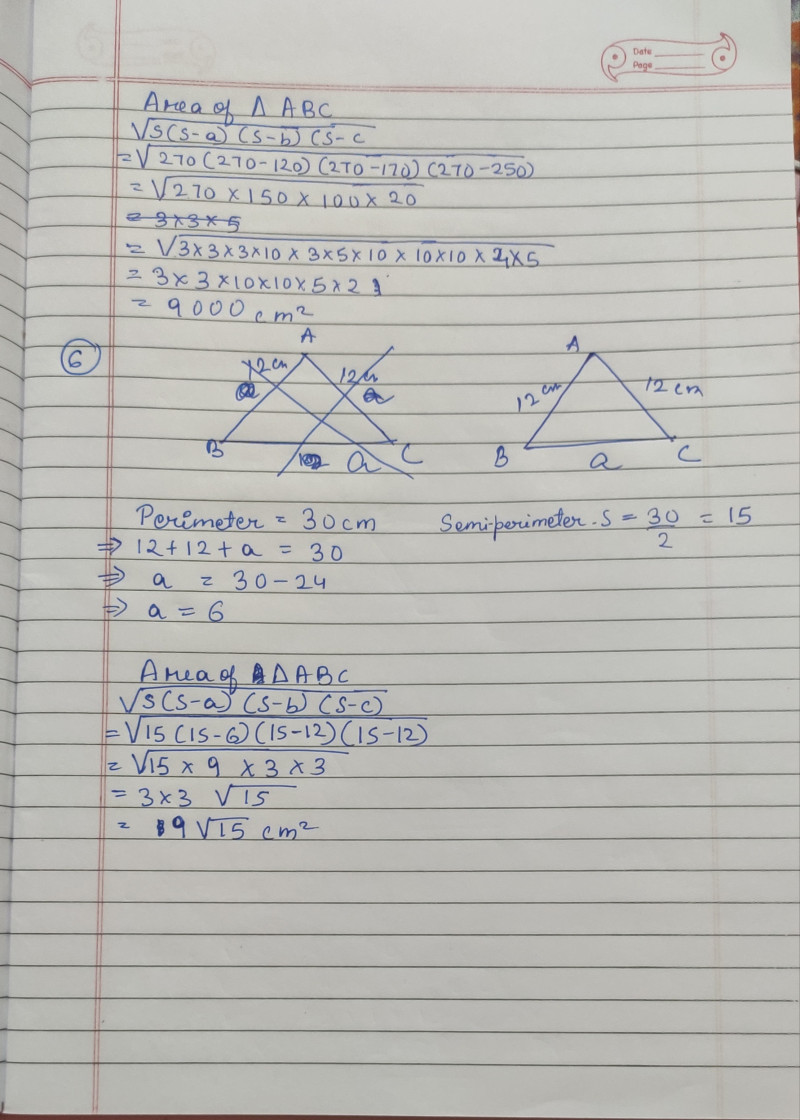 Date
Page
Area of Δ ABC
√S(S-a) (S-b) (S-c
=√270(270-120) (270-170) (270-250)
= √270 × 150 × 100 × 20
= 3×3×5
= √3×3×3×10 × 3×5×10 × 10×10 × 2×5
= 3×3×10×10×5×2
= 9000 cm²
6
A
12cm
12cm
B
a
C
A
12 cm
12 cm
B
a
C
Perimeter = 30cm
Semiperimeter.S = 30/2 = 15
⇒ 12+12+a = 30
⇒ a = 30-24
⇒ a = 6
Area of Δ ABC
√S(S-a) (S-b) (S-c)
=√15(15-6)(15-12)(15-12)
= √15 × 9 × 3 × 3
= 3×3 √15
= 9√15 cm²